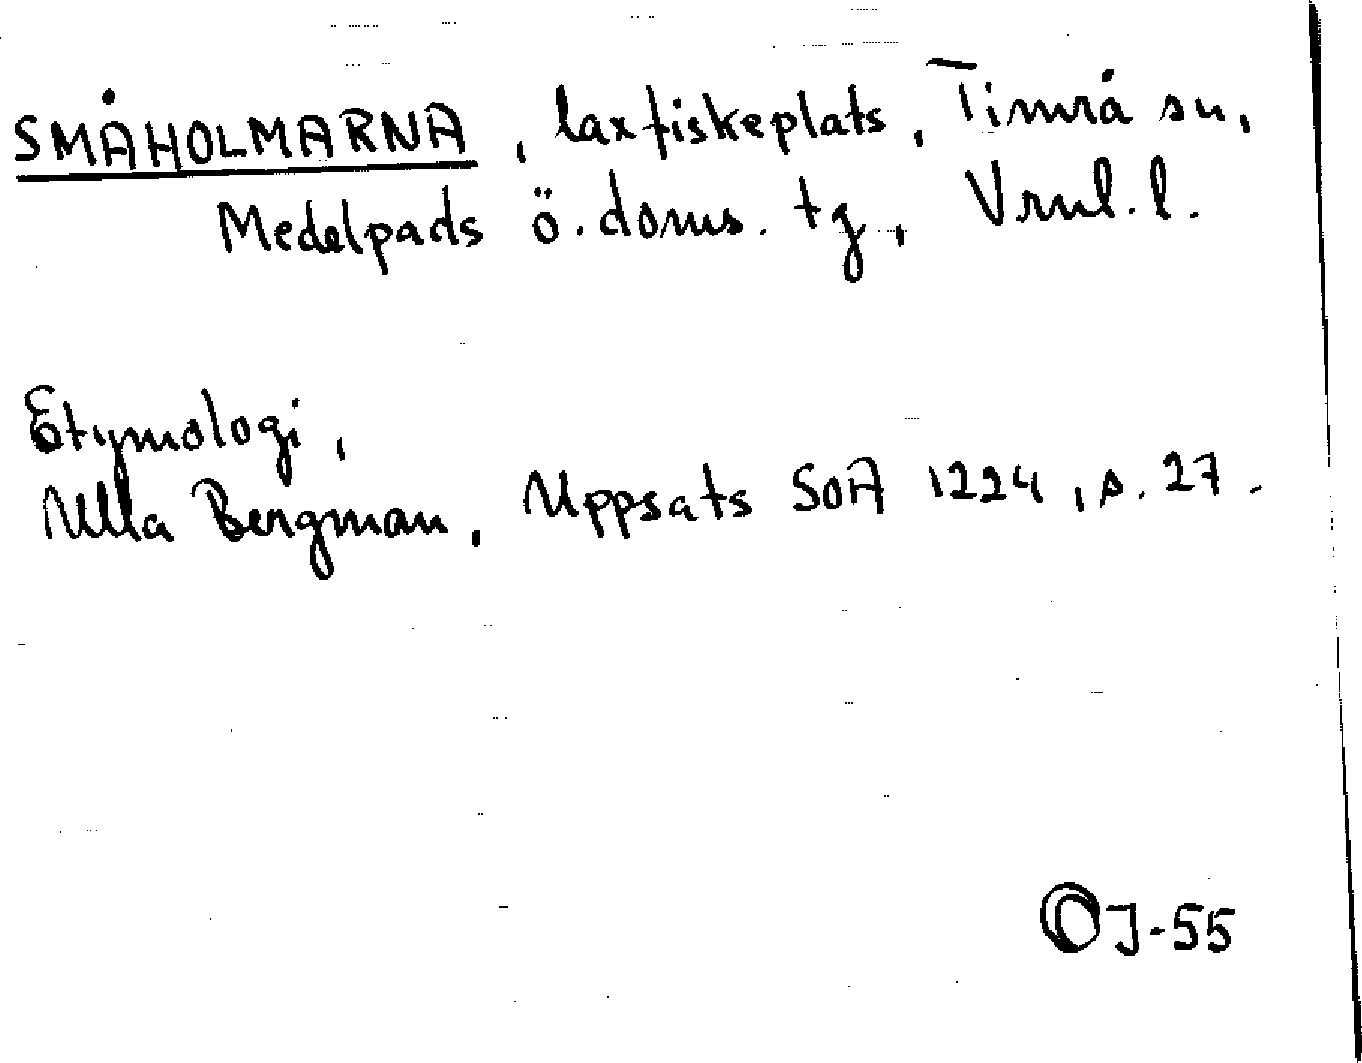 SMÅHOLMARNA, laxfiskeplats, Timrå sn,
Medelpads ö. doms. tg., Vrnl. l.
Etymologi,
Ulla Bergman, Uppsats SOA 1224, s. 27.
OJ-55